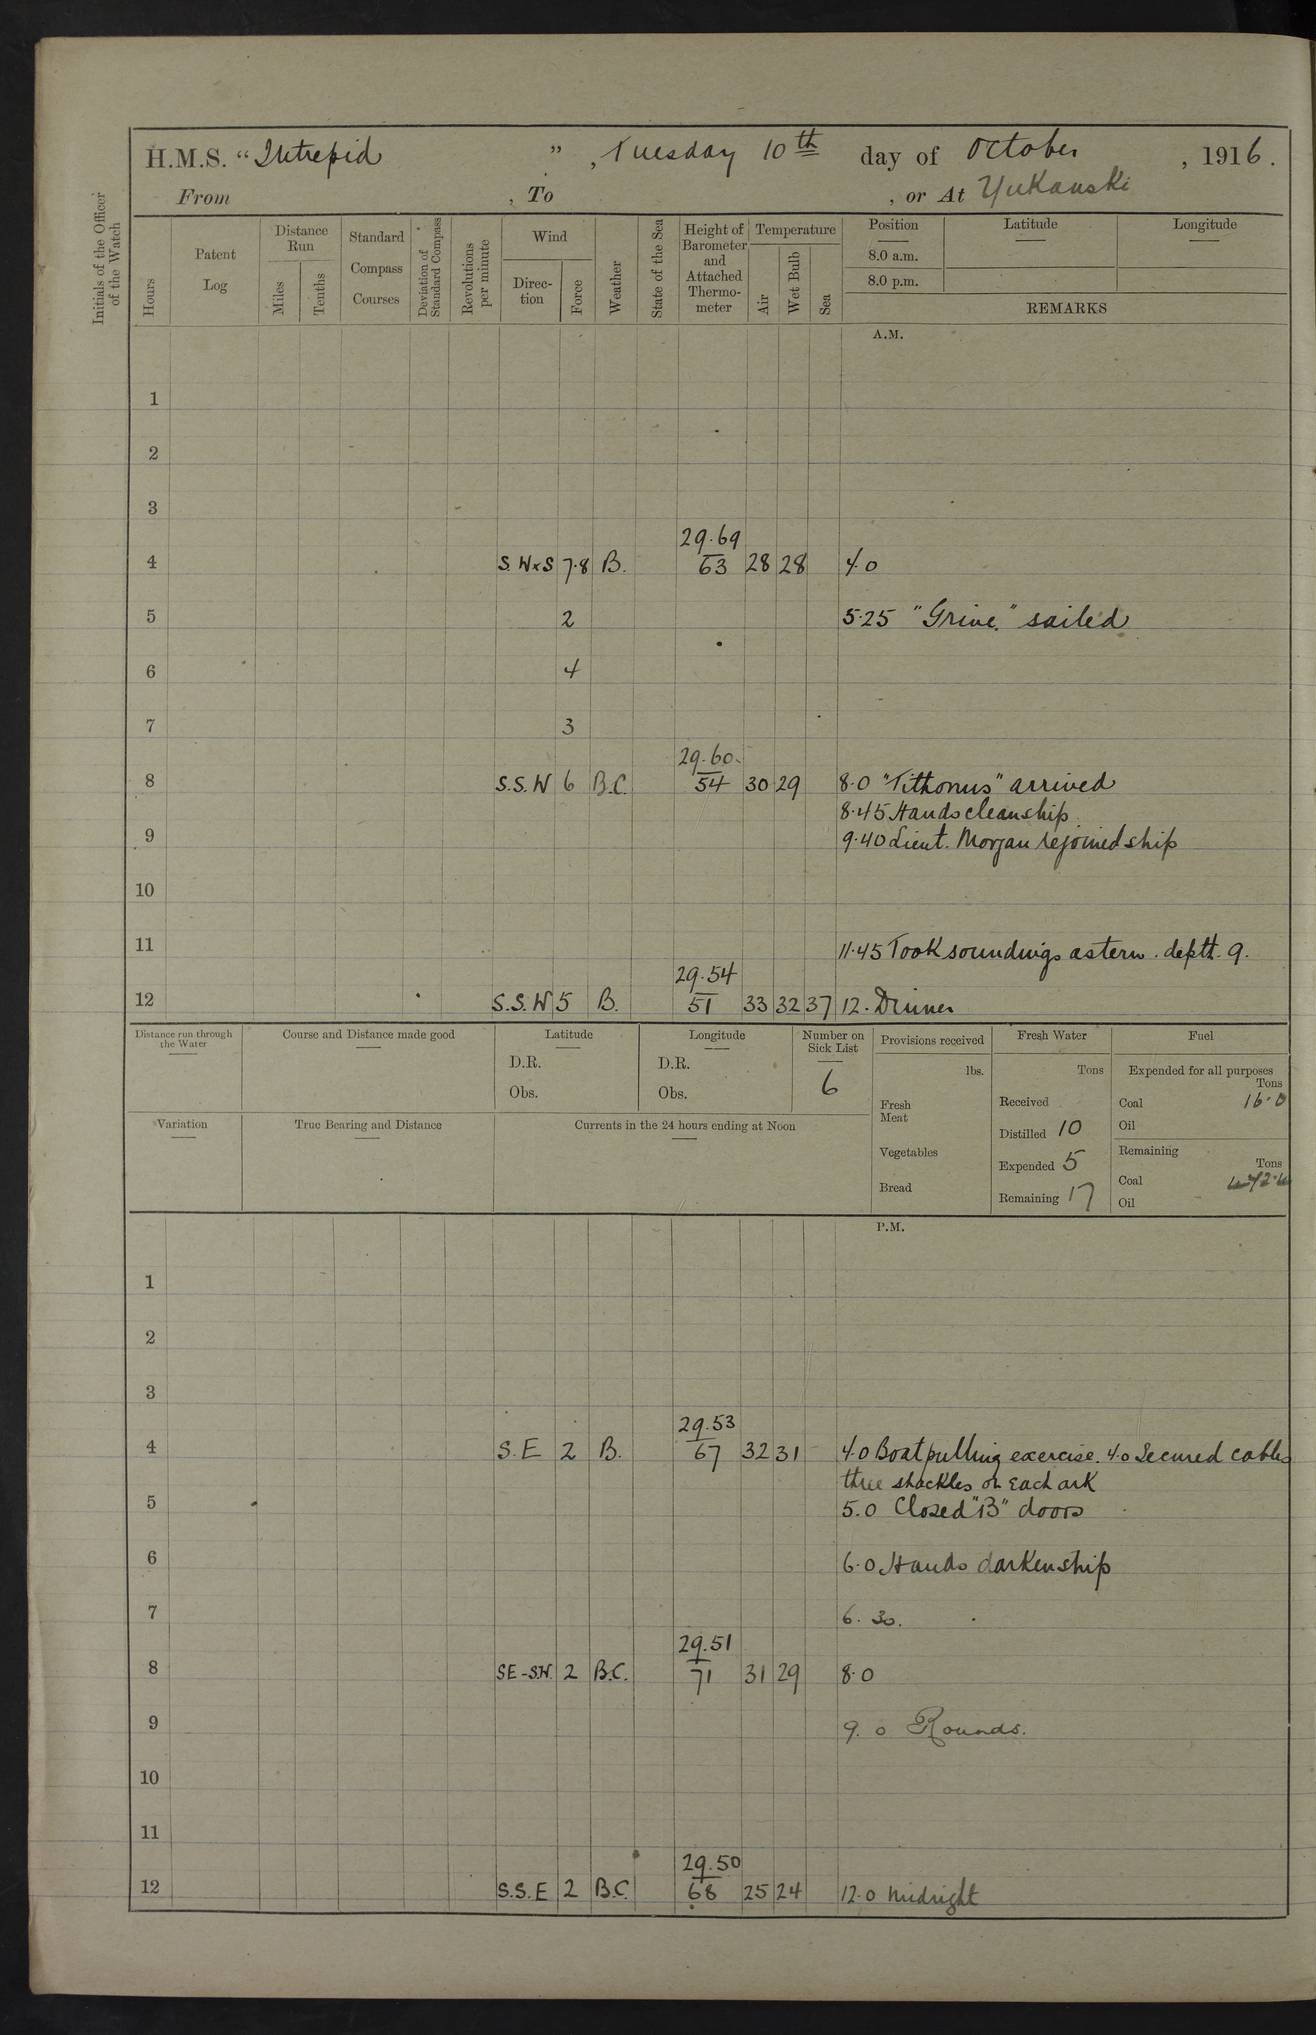 H.M.S. "Intrepid", Tuesday 10th day of October, 1916.
From , To , or At Yukanski
Initials of the Officer of the Watch
Hours
Patent Log
Distance Run
Miles
Tenths
Standard Compass Courses
Deviation of Standard Compass
Revolutions per minute
Wind
Direction
Force
Weather
State of the Sea
Height of Barometer and Attached Thermometer
Temperature
Air
Wet Bulb
Sea
Position
8.0 a.m.
8.0 p.m.
Latitude
Longitude
REMARKS
A.M.
1
2
3
29.69
4 S.WxS 7.8 B. 63 28 28 4.0
5 2 5.25 "Grive." sailed
6 4
7 3
29.60.
8 S.S.W 6 B.C. 54 30 29 8.0 "Tithonus" arrived
8.45 Hands clean ship.
9 9.40 Lieut. Morgan rejoined ship
10
11 11.45 Took soundings astern. depth. 9.
29.54
12 S.S.W 5 B. 51 33 32 37 12. Dinner
Distance run through the Water
Course and Distance made good
Latitude
D.R.
Obs.
Longitude
D.R.
Obs.
Number on Sick List
6
Variation
True Bearing and Distance
Currents in the 24 hours ending at Noon
Provisions received
lbs.
Fresh Meat
Vegetables
Bread
Fresh Water
Tons
Received
Distilled 10
Expended 5
Remaining 17
Fuel
Expended for all purposes
Tons
Coal 16.0
Oil
Remaining
Tons
Coal
Oil
P.M.
1
2
3
29.53
4 S.E 2 B. 67 32 31 4.0 Boat pulling exercise. 4.0 Secured cables
three shackles on each ark
5 5.0 Closed "B" doors
6 6.0 Hands darken ship
7 6.30.
29.51
8 SE-S.W. 2 B.C. 71 31 29 8.0
9 9.0 Rounds.
10
11
29.50
12 S.S.E 2 B.C. 68 25 24 12.0 Midnight